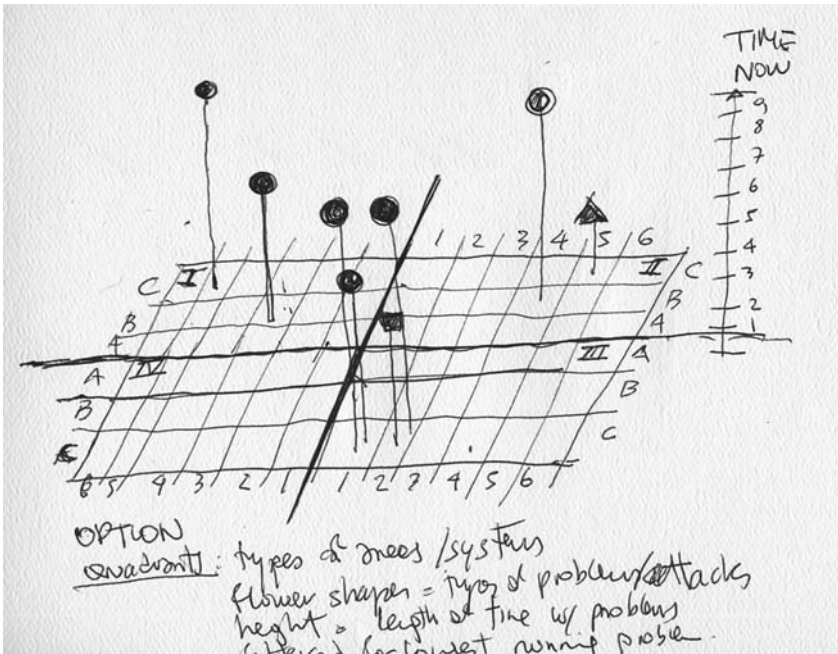 TIME
NOW
9
8
7
6
5
4
3
2
1
1 2 3 4 5 6
I II
C C
B B
A A
IV III
A A
B B
C C
6 5 4 3 2 1 1 2 3 4 5 6
OPTION
quadrants: types of areas / systems
flower shapes = types of problems/attacks
height = length of time w/ problems
longest running problem.